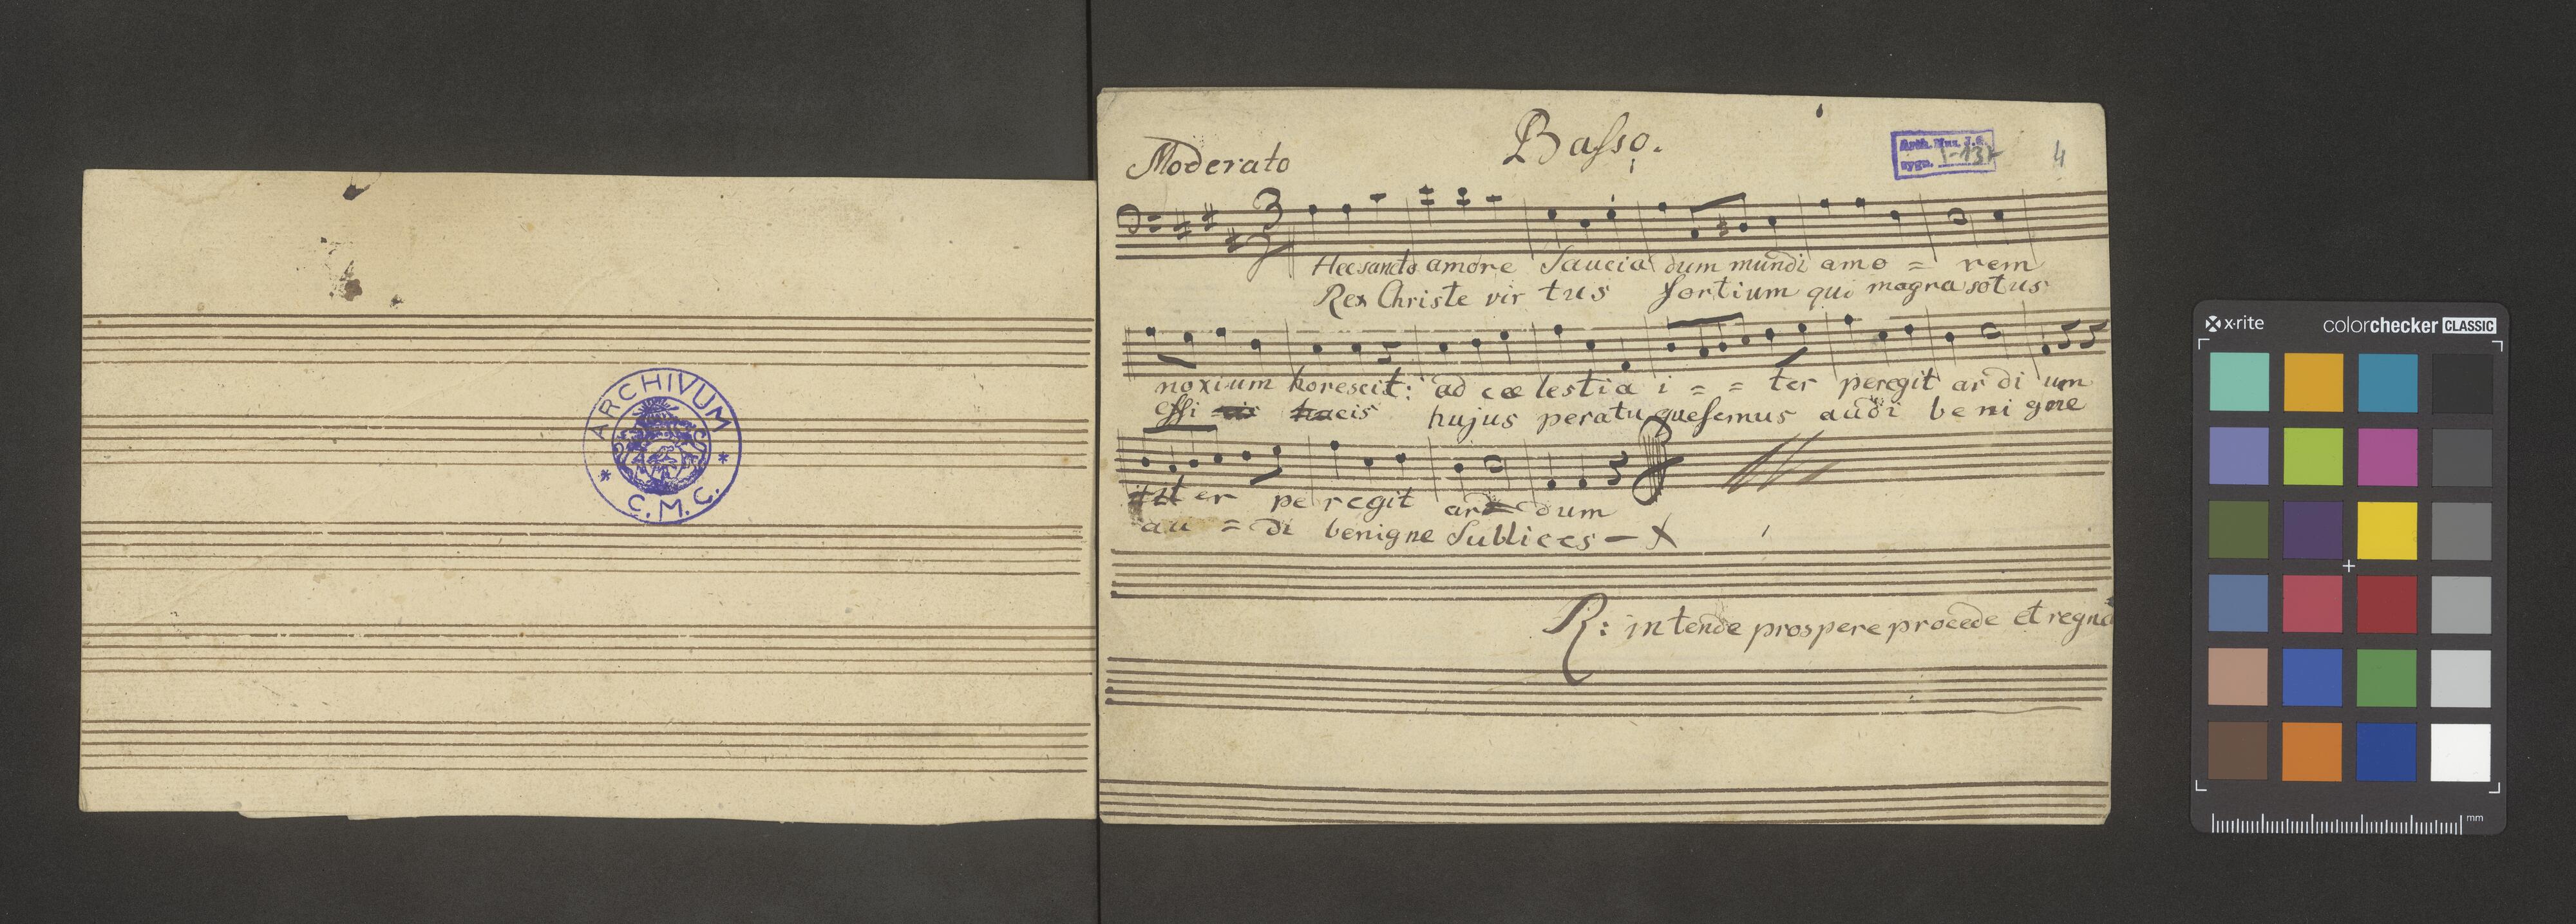 ARCHIVUM
* C.M.C. *
Basso.
Moderato
Arch. Muz. J.G.
sygn. I-137
4
3
Hec sancto amore Saucia dum mundi amo = rem
Rex Christe vir tus fortium qui magna sotus
noxium horescit: ad cœ lestia i = = ter peregit ar di um
effi = cis hacis hujus peratu quesemus audi beni gne
iter pe regit ar dum
au = di benigne Sublices — X
R: intende prospere procede et regna
x·rite
colorchecker CLASSIC
mm